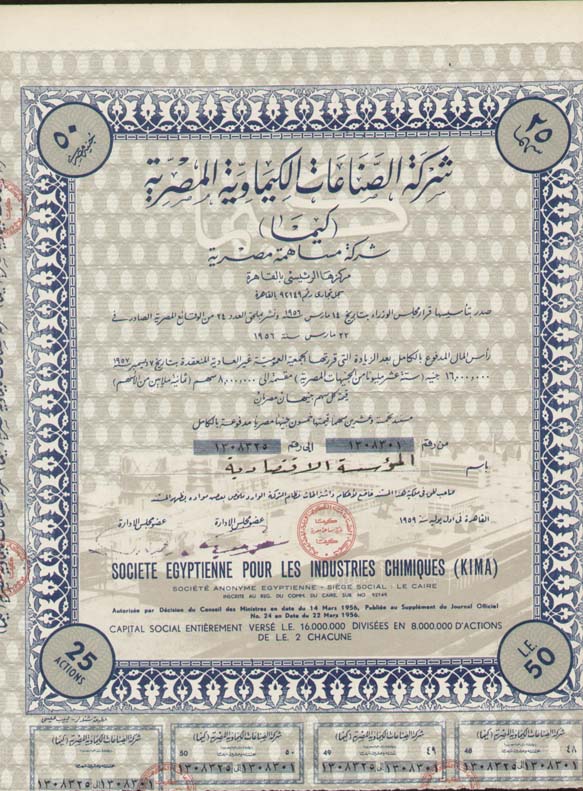 ٥٠
جنيه مصرى
٢٥
سهما
شركة الصناعات الكيماوية المصرية
(كيما)
شركة مساهمة مصرية
مركزها الرئيسى بالقاهرة
سجل تجارى رقم ٩٢١٤٩ بالقاهرة
صدر بتأسيسها قرار مجلس الوزراء بتاريخ ١٤ مارس ١٩٥٦ ونشر بملحق العدد ٢٤ من الوقائع المصرية الصادر فى
٢٢ مارس سنة ١٩٥٦
رأس المال المدفوع بالكامل بعد الزيادة التى قررتها الجمعية العمومية غير العادية المنعقدة بتاريخ ٧ ديسمبر ١٩٥٧
١٦٫٠٠٠٫٠٠٠ جنيه (ستة عشر مليونا من الجنيهات المصرية) مقسمة الى ٨٫٠٠٠٫٠٠٠ سهم (ثمانية ملايين من الأسهم)
قيمة كل سهم جنيهان مصريان
سند بخمسة وعشرين سهما قيمتها خمسون جنيها مصريا مدفوعة بالكامل
من رقم ١٣٠٨٣٠١ الى رقم ١٣٠٨٣٢٥
باسم المؤسسة الاقتصادية
القاهرة فى اول يوليه سنة ١٩٥٩
عضو مجلس الإدارة
عضو مجلس الإدارة
كيما
SOCIETE EGYPTIENNE POUR LES INDUSTRIES CHIMIQUES (KIMA)
SOCIÉTÉ ANONYME EGYPTIENNE - SIÈGE SOCIAL : LE CAIRE
INSCRITE AU REG. DU COMM. DU CAIRE SUB NO 92149
Autorisée par Décision du Conseil des Ministres en date du 14 Mars 1956, Publiée au Supplément du Journal Officiel
No. 24 en Date du 22 Mars 1956.
CAPITAL SOCIAL ENTIÈREMENT VERSÉ L.E. 16.000.000 DIVISÉES EN 8.000.000 D'ACTIONS
DE L.E. 2 CHACUNE
25
ACTIONS
L.E
50
شركة الصناعات الكيماوية المصرية (كيما)
٤٨ 48
شركة الصناعات الكيماوية المصرية (كيما)
٤٩ 49
شركة الصناعات الكيماوية المصرية (كيما)
٥٠ 50
شركة الصناعات الكيماوية المصرية (كيما)
١٣٠٨٣٠١ الى ١٣٠٨٣٢٥
١٣٠٨٣٠١ الى ١٣٠٨٣٢٥
١٣٠٨٣٠١ الى ١٣٠٨٣٢٥
١٣٠٨٣٠١ الى ١٣٠٨٣٢٥